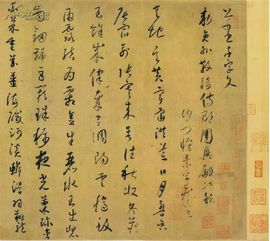 千字文
敕員外散騎侍郎周興嗣次韻
沙門懷素
天地玄黃宇宙洪荒日月盈昃
辰宿列張寒來暑往秋收冬藏
閏餘成歲律召調陽雲騰致
雨露結為霜金生麗水玉出崑
崗劍號巨闕珠稱夜光果珍李
柰菜重芥薑海鹹河淡鱗潛羽翔龍